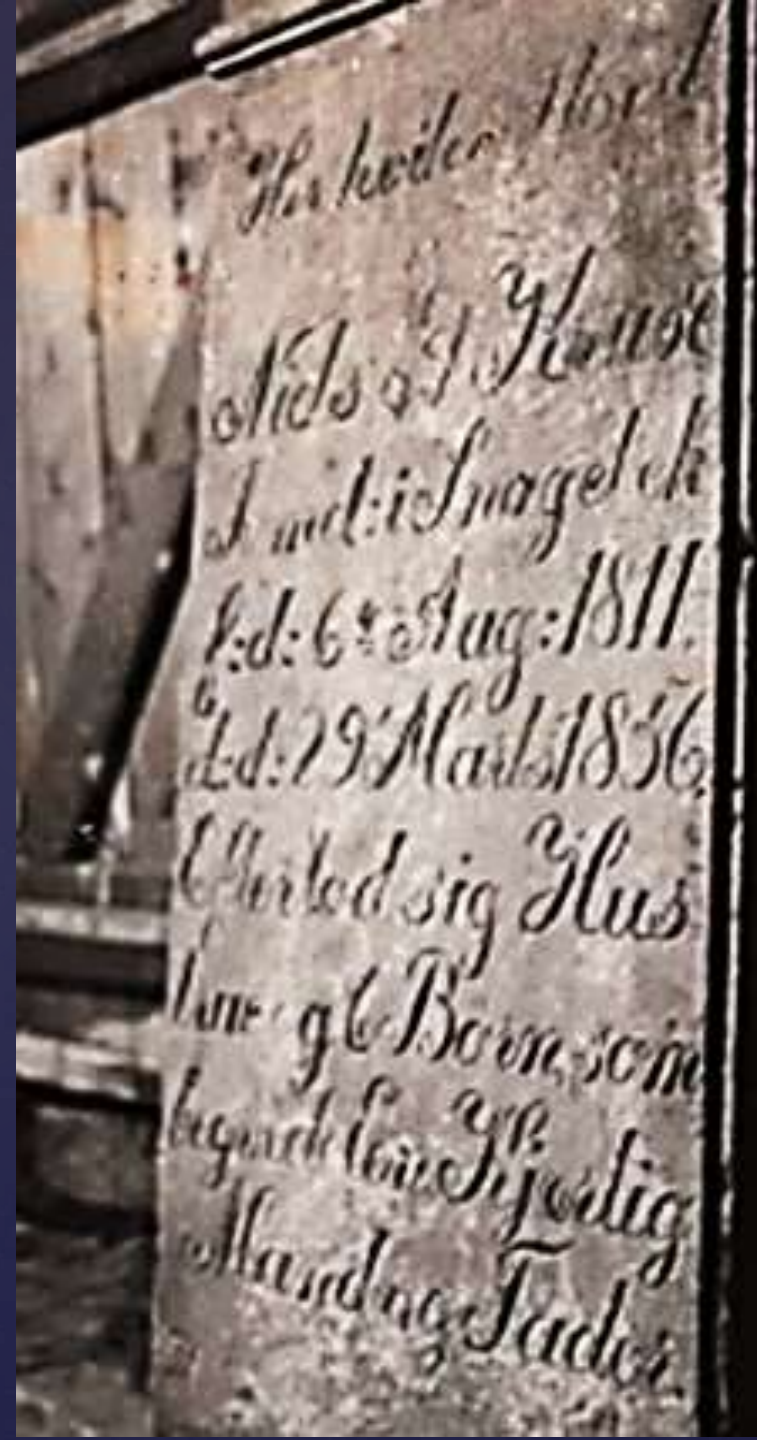 Her hviler Støvet
Niels J. Kruse
Smed: i Snagebek
F:d: 6te Aug: 1811.
d:d: 29 Marts 1856.
Efterlod sig Hus
true og 6 Børn, som
en Kjerlig
Mand og Fader